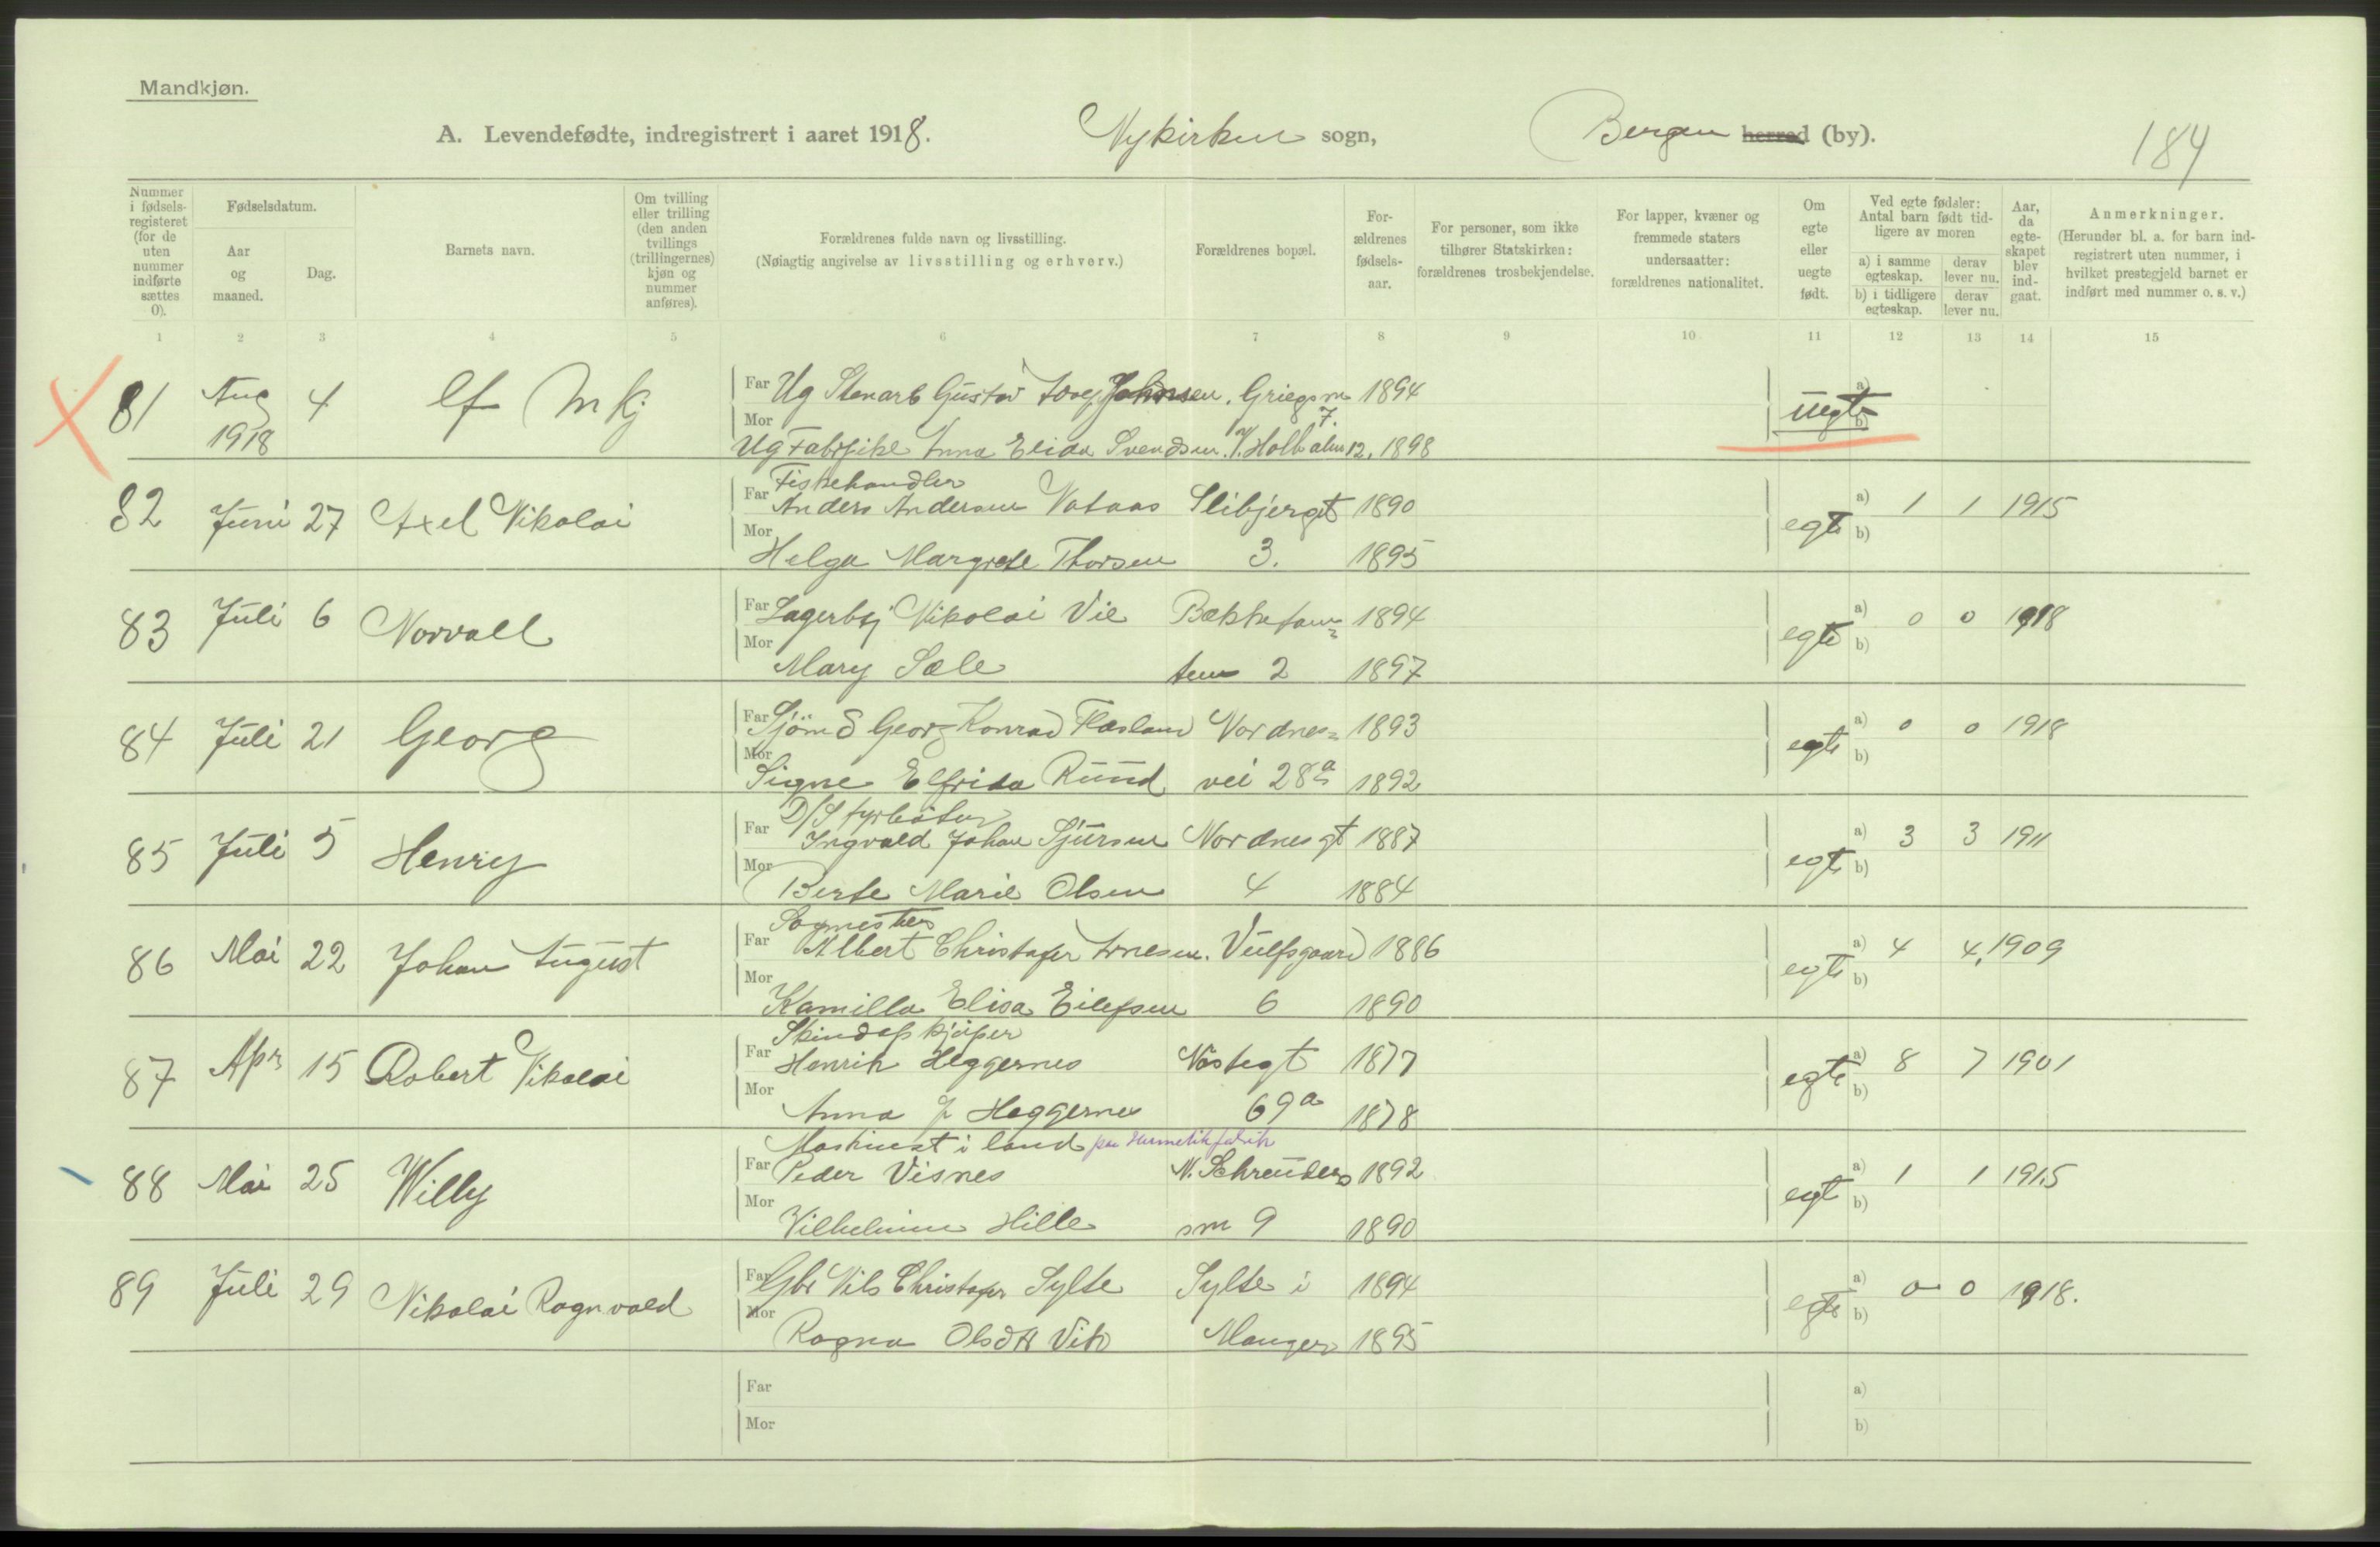 Mandkjøn.
A. Levendefødte, indregistrert i aaret 1918. Nykirken sogn, Bergen herred (by). 184
Nummer i fødsels-registeret (for de uten nummer indførte sættes 0).
Fødselsdatum.
Aar og maaned.
Dag.
Barnets navn.
Om tvilling eller trilling (den anden tvillings (trillingernes) kjøn og nummer anføres).
Forældrenes fulde navn og livsstilling.
(Nøiagtig angivelse av livsstilling og erhverv.)
Forældrenes bopæl.
For-ældrenes fødsels-aar.
For personer, som ikke tilhører Statskirken: forældrenes trosbekjendelse.
For lapper, kvæner og fremmede staters undersaatter: forældrenes nationalitet.
Om egte eller uegte født.
Ved egte fødsler: Antal barn født tid-ligere av moren
a) i samme egteskap.
derav lever nu.
b) i tidligere egteskap.
derav lever nu.
Aar, da egte-skapet blev ind-gaat.
Anmerkninger.
(Herunder bl. a. for barn ind-registrert uten nummer, i hvilket prestegjeld barnet er indført med nummer o. s. v.)
1 2 3 4 5 6 7 8 9 10 11 12 13 14 15
81 Aug 1918 4 Mkj
Far Ug Gustav Johnsen. Griegsm 7. 1894 uegte a) b)
Mor Ug Anna Elida Svendsen. 12. 1898
82 Juni 27 Axel Nikolai
Fiskehandler
Far Anders Andersen Vataas Slibjergt 1890 egte a) 1 1 1915 b)
Mor Helga Margrete Thorsen 3. 1895
83 Juli 6 Norvall
Far Lagerbtj Nikolai Vie 1894 egte a) 0 0 1918 b)
Mor Mary Sæle 2 1897
84 Juli 21 Georg
Far Georg Konrad Nordnes= 1893 egte a) 0 0 1918 b)
Mor Signe Elfrida Ruud vei 28a 1892
85 Juli 5 Henry
D/S fyrbøter
Far Ingvald Johan Sjursen Nordnesgt 1887 egte a) 3 3 1911 b)
Mor Berte Marie Olsen 4 1884
86 Mai 22 Johan August
Far Albert Christofer Arnesen. Vulfsgaard 1886 egte a) 4 4. 1909 b)
Mor Kamilla Elisa Eilefsen 6 1890
87 Apr 15 Robert Nikolai
Skindopkjøper
Far Henrik Heggernes Nøstegt 1877 egte a) 8 7 1901 b)
Mor Anna J Heggernes 69a 1878
88 Mai 25 Willy
Maskinist i land paa Hermetikfabrik
Far Peder Visnes N. Schreuders 1892 egt a) 1 1 1915 b)
Mor Vilhelmine Hille sm 9 1890
89 Juli 29 Nikolai Ragnvald
Far Gbr Nils Christofer Sylte Sylte i 1894 egte a) 0 0 1918. b)
Mor Ragna Olsdtr Vik Manger 1895
Far a)
Mor b)